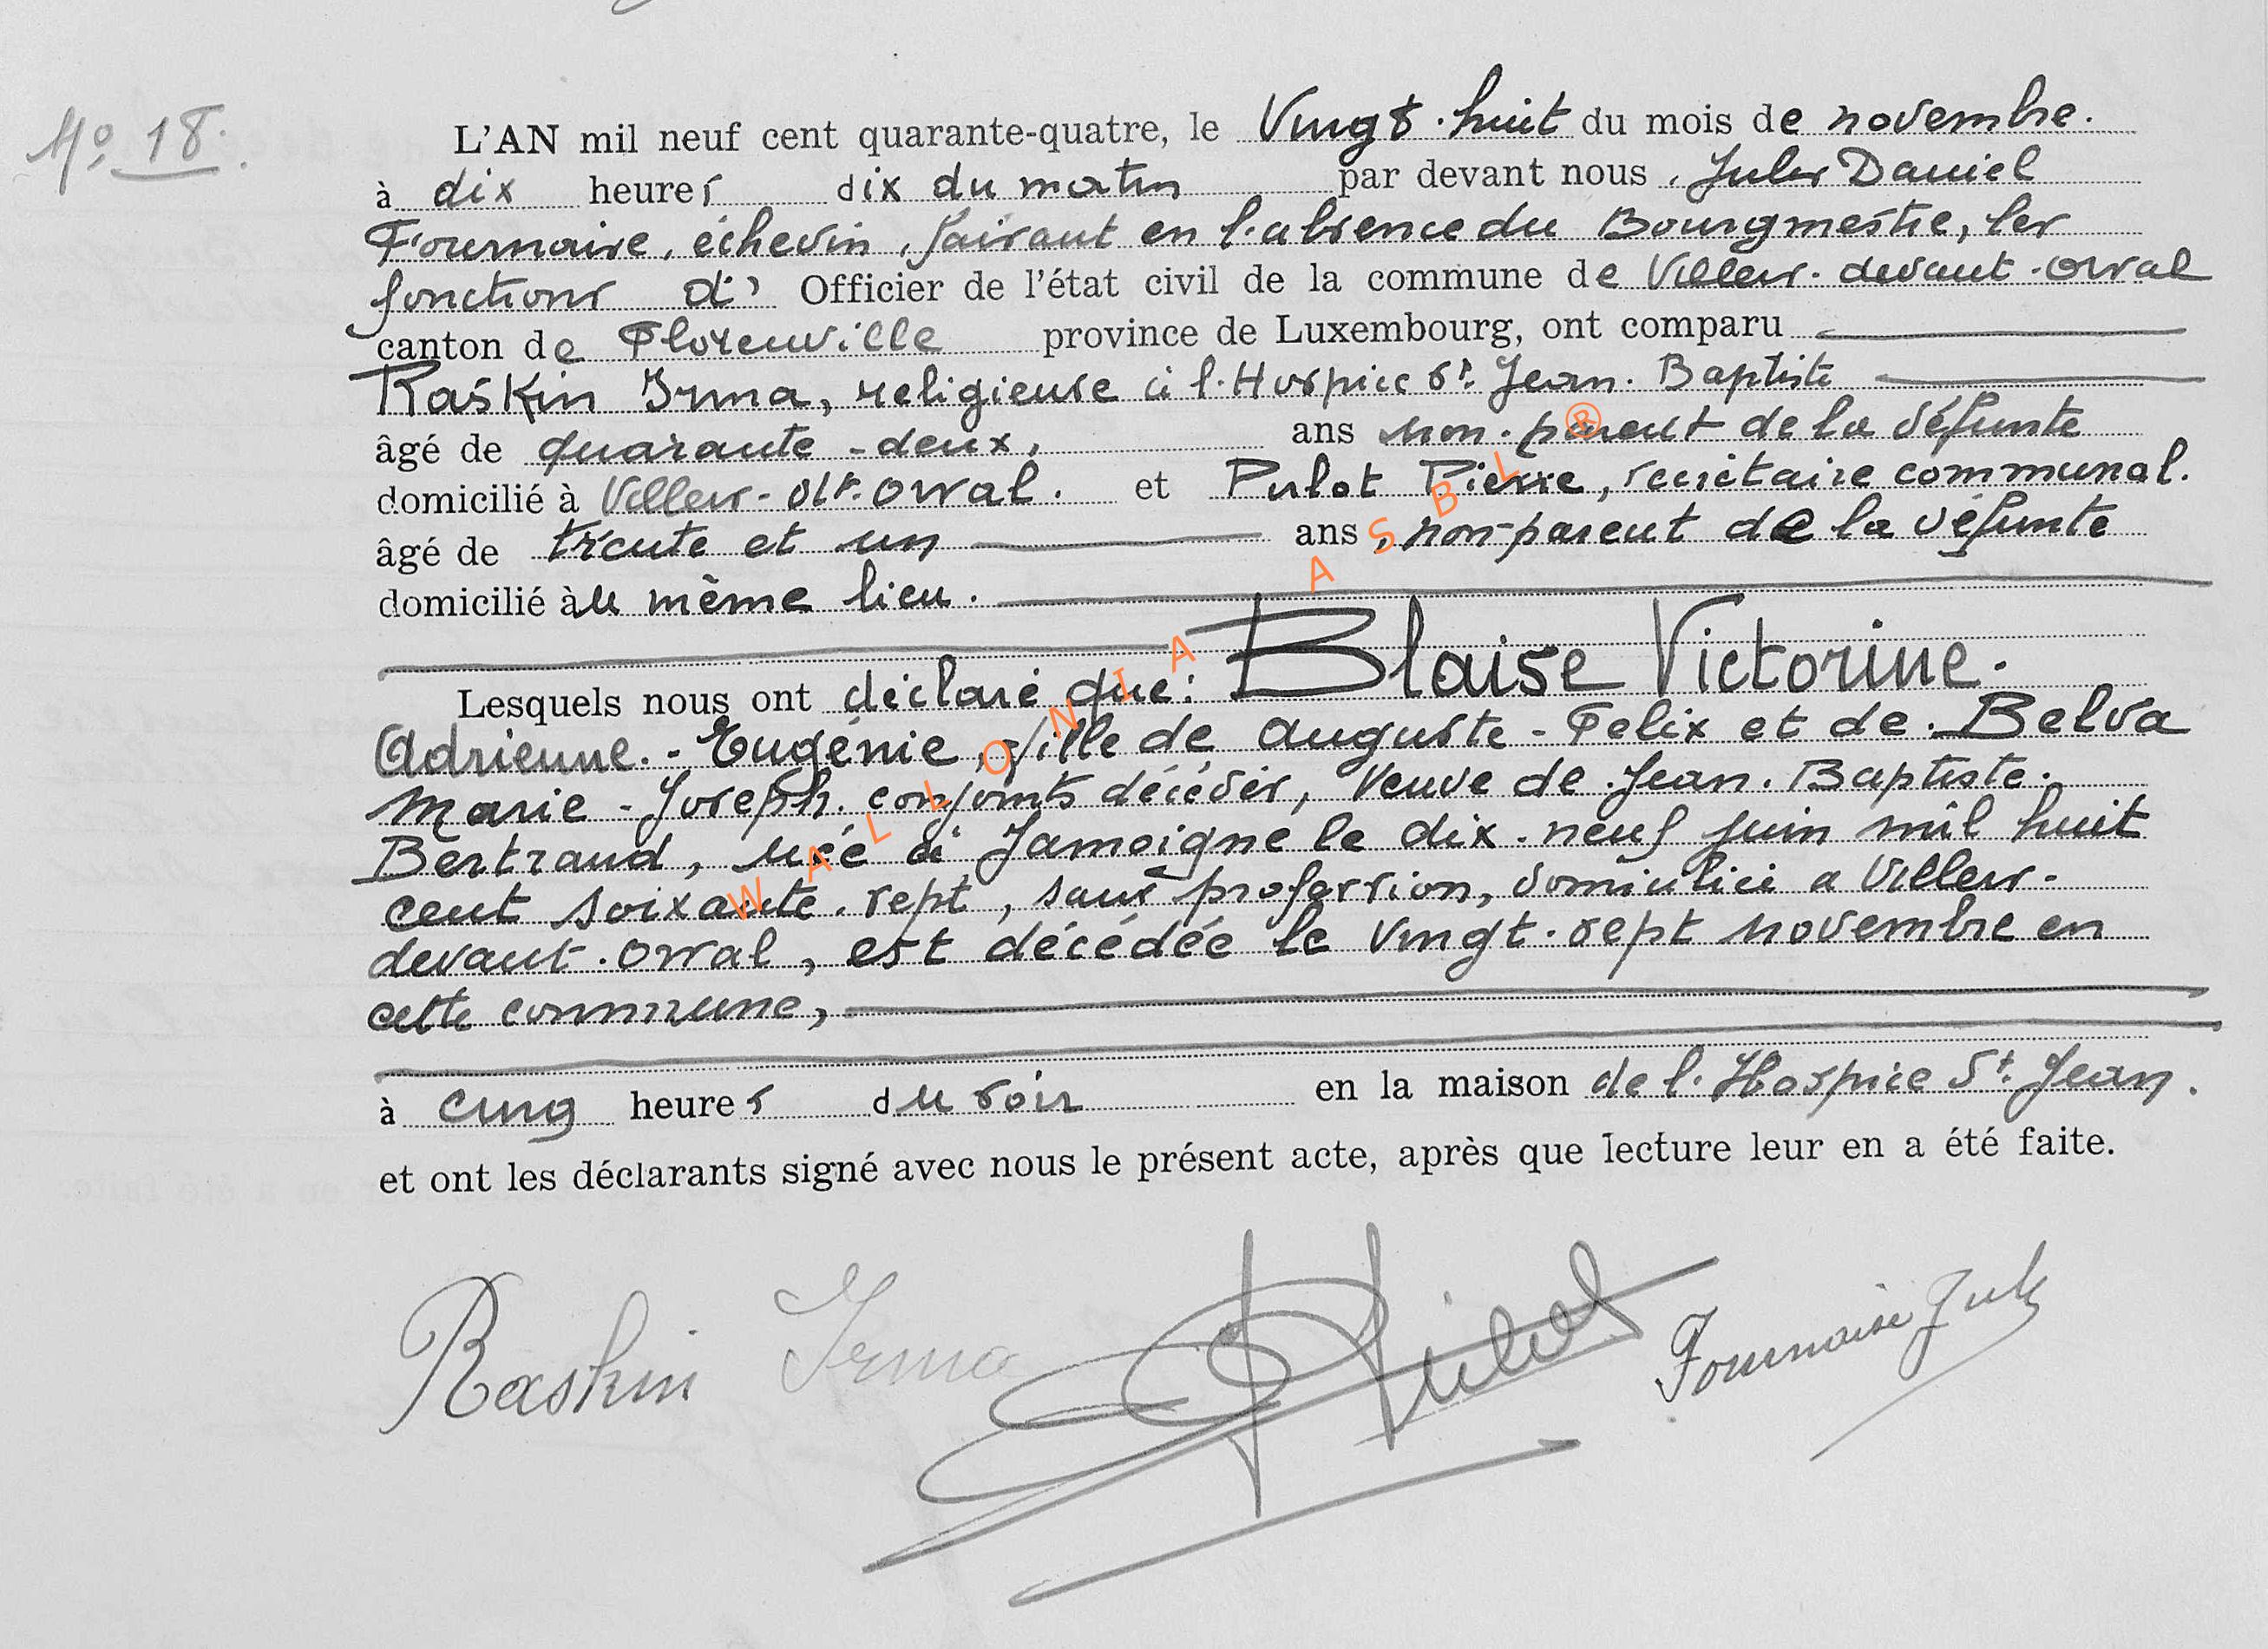 N° 18.
L'AN mil neuf cent quarante-quatre, le Vingt-huit du mois de novembre.
à dix heures dix du matin par devant nous, Jules Daniel
Fournaise, échevin, faisant en l'absence du Bourgmestre, les
fonctions d' Officier de l'état civil de la commune de Villers-devant-Orval
canton de Florenville province de Luxembourg, ont comparu
Raskin Irma, religieuse à l'Hospice St. Jean-Baptiste
âgé de quarante-deux, ans non-parent de la défunte
domicilié à Villers-dt-Orval. et Pulot Pierre, secrétaire communal.
âgé de trente et un ans, non-parent de la défunte
domicilié au même lieu.
Lesquels nous ont déclaré que: Blaise Victorine-
Adrienne-Eugénie, fille de Auguste-Felix et de Belva
Marie-Joseph. conjoints décédés, Veuve de Jean-Baptiste-
Bertrand, née à Jamoigne le dix-neuf juin mil huit
cent soixante-sept, sans profession, domicilié a Villers-
devant-Orval, est décédée le Vingt-sept novembre en
cette commune,
à cinq heures du soir en la maison de l'Hospice St. Jean.
et ont les déclarants signé avec nous le présent acte, après que lecture leur en a été faite.
Raskin Irma Pulot Fournaise Jules
WALLONIA ASBL ®